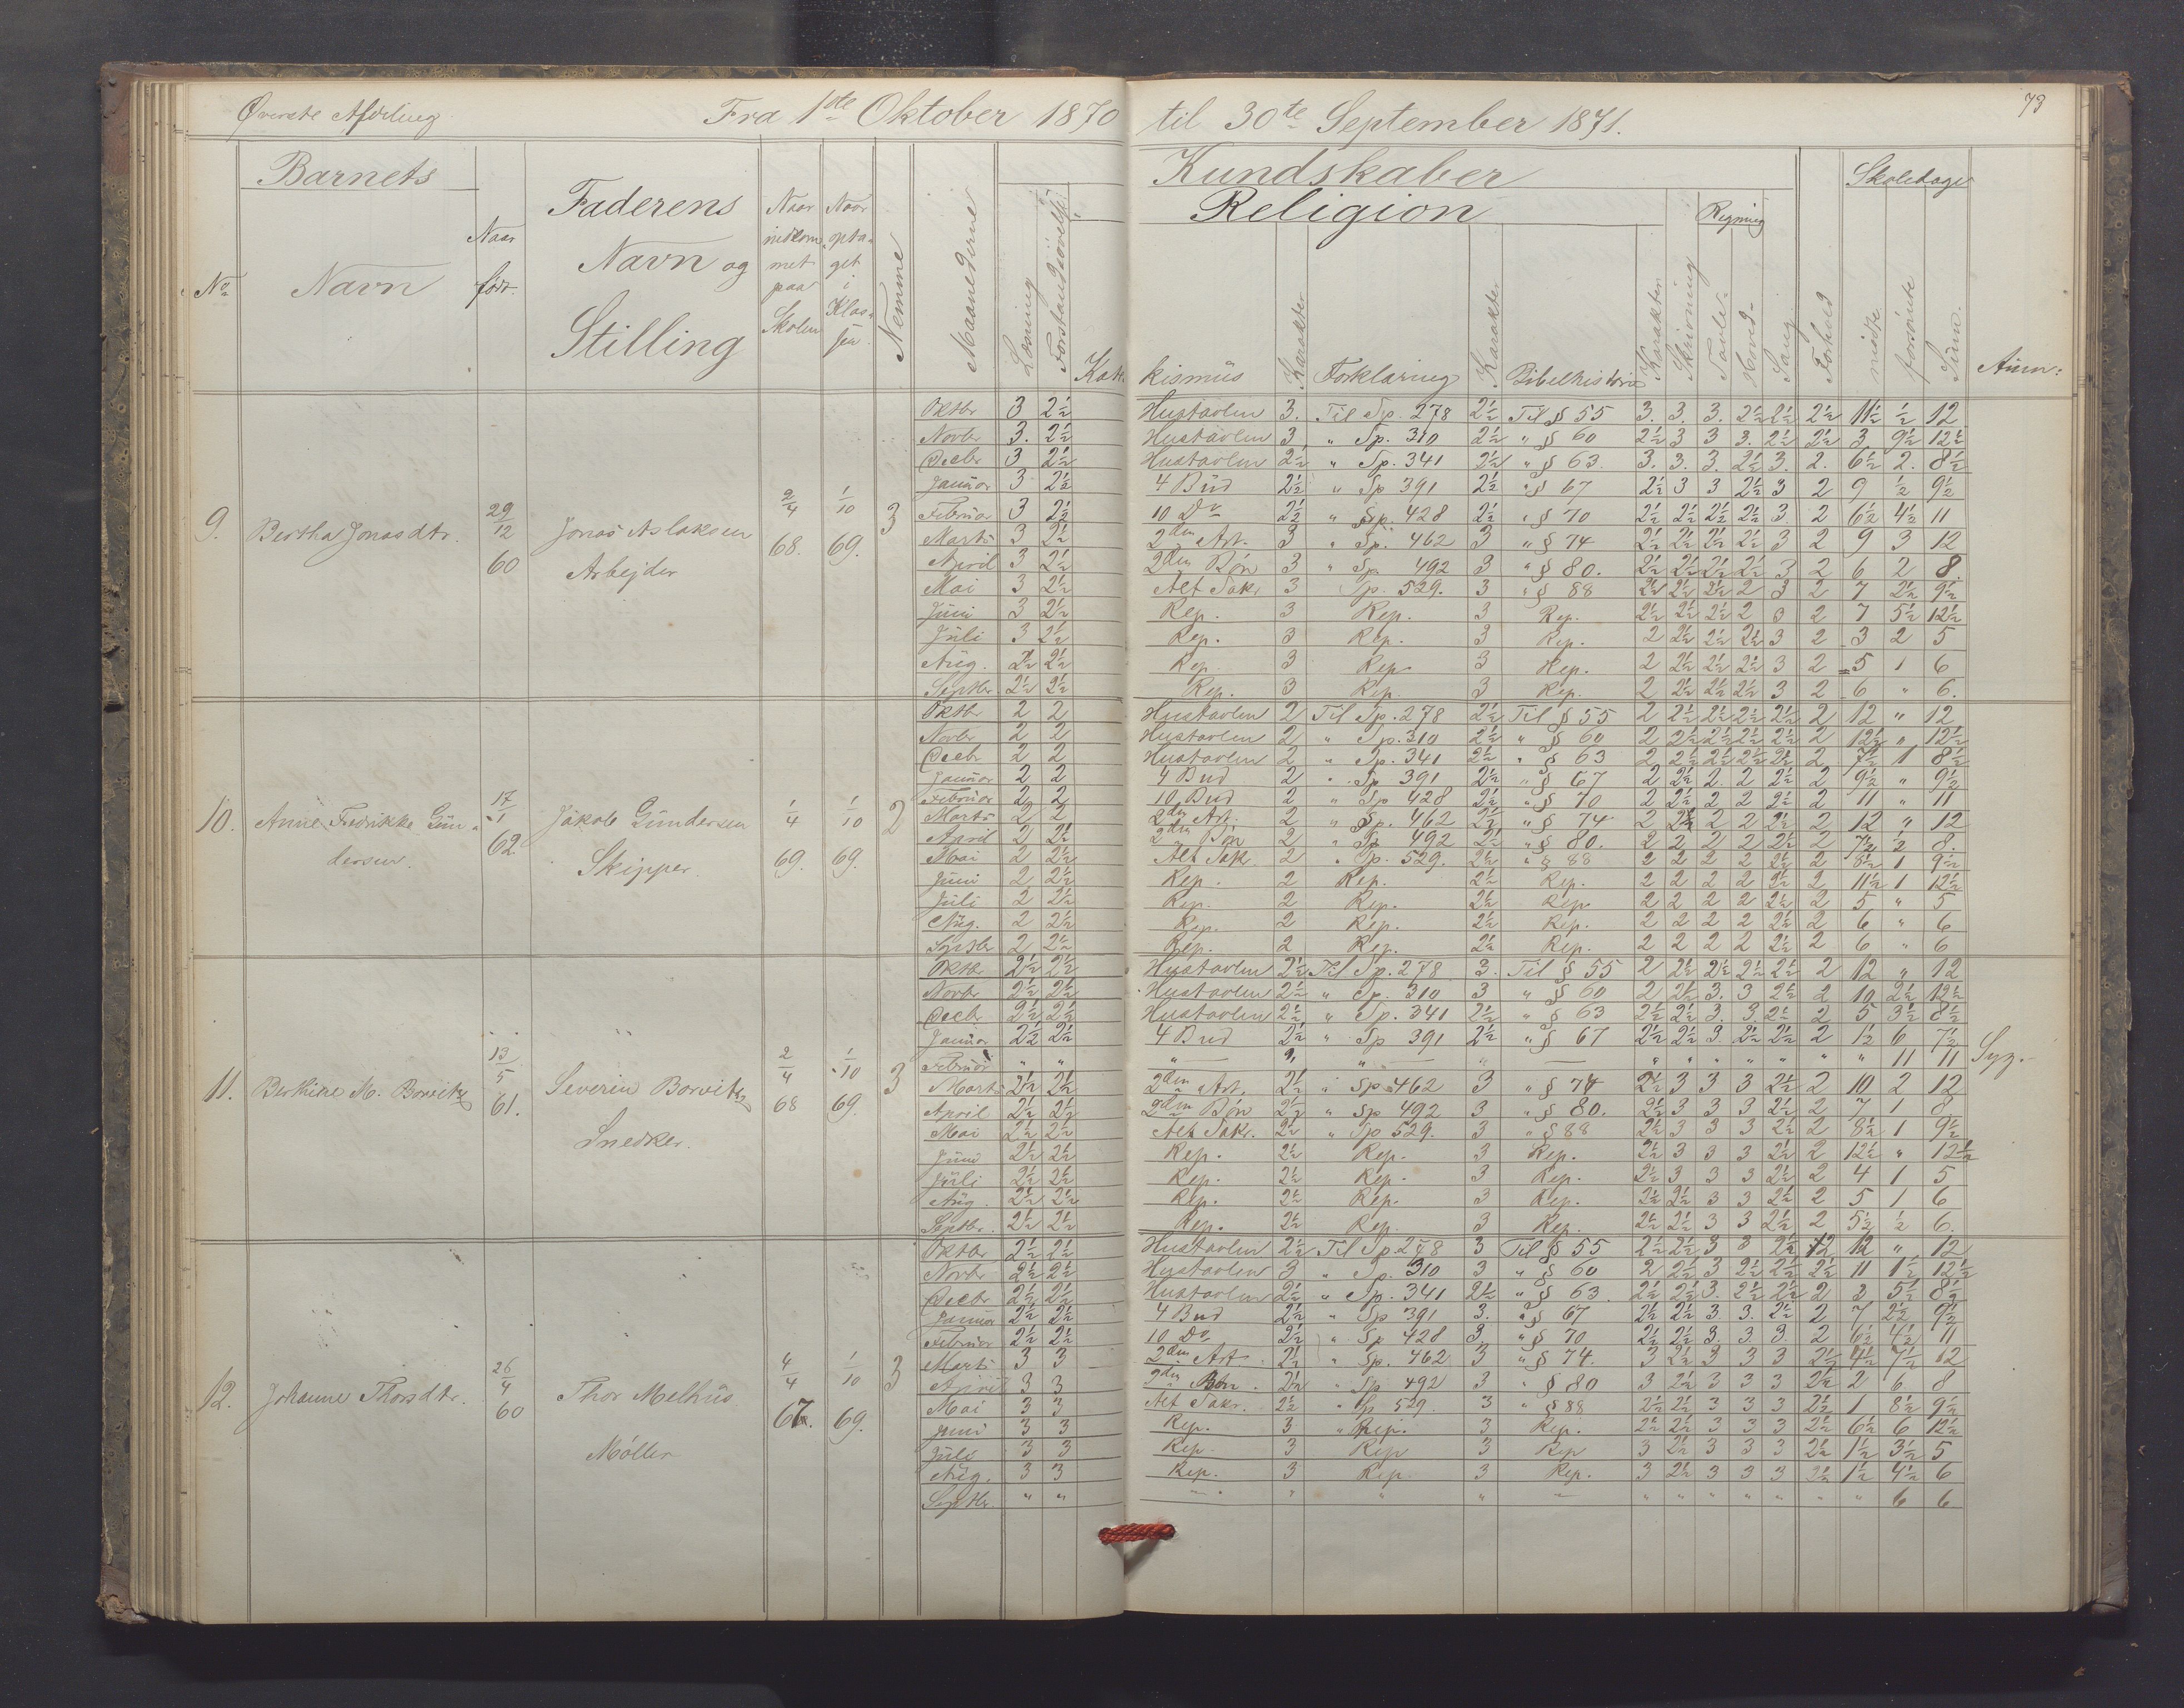 73
Øverste Afdeling. Fra 1ste Oktober 1870 til 30te September 1871.
Barnets Kundskaber Skoledage
Religion Regning
No Navn Naar født. Faderens Navn og Stilling Naar indkommet paa Skolen Naar optaget i Klassen. Nemme Maanederne Læsning Forstandsøvelse Katekismus Karakter Forklaring Karakter Bibelhistorie Karakter Skrivning Tavle- Hoved- Sang. Forhold mødte forsømte Sum. Anm:
9. Bertha Jonasdtr. 29/12 60 Jonas Aslaksen Arbejder 2/4 68. 1/10 69. 3
Oktbr 3 2½ Hustavlen 3. Til Sp. 278 2½ Til § 55 3. 3. 3. 2½ 2½ 2½ 11½ ½ 12
Novbr 3. 2½ Hustavlen 3 " Sp. 310 2½ " § 60 2½ 3 3 3. 2½ 2½ 3 9½ 12½
Decbr 3 2½ Hustavlen 2½ " Sp. 341 2½ " § 63. 3. 3. 3. 2½ 3. 2. 6½ 2. 8½
Januar 3 2½ 4 Bud 2½ " Sp 391 2½ " § 67 2½ 3 3 2½ 3 2 9 ½ 9½
Februar 3 2½ 10 Do 2½ " Sp. 428 2½ " § 70 2½ 2½ 2½ 2½ 3 2 6½ 4½ 11
Marts 3 2½ 2den Art. 3 " Sp. 462 3 " § 74 2½ 2½ 2½ 2½ 3 2 9 3 12
April 3 2½ 2den Bøn 3 " Sp 492 3 " § 80. 2½ 2½ 2½ 2½ 3 2 6 2 8
Mai 3 2½ Alt Sakr 3 Sp. 529. 3 " § 88 2½ 2½ 2½ 2 3 2 7 2½ 9½
Juni 3 2½ Rep. 3 Rep. 3 Rep. 2½ 2½ 2½ 2 3 2 7 5½ 12½
Juli 3 2½ Rep. 3 Rep. 3 Rep. 2 2½ 2½ 2½ 3 2 3 2 5
Aug. 2½ 2½ Rep 3 Rep. 3 Rep. 2 2½ 2½ 2½ 3 2 5 1 6
Septbr. 2½ 2½ Rep. 3 Rep. 3 Rep. 2 2½ 2½ 2½ 3 2 6 " 6.
10. Anne Fredrikke Gundersen. 17/1 62. Jakob Gundersen Skipper. 1/4 69. 1/10 69. 2
Oktbr 2 2 Hustavlen 2 Til Sp. 278 2½ Til § 55 2 2½ 2½ 2½ 2½ 2 12 " 12
Novbr 2 2 Hustavlen 2 " Sp. 310 2½ " § 60 2 2½ 2½ 2½ 2½ 2 12½ " 12½
Decbr 2 2 Hustavlen 2 " Sp. 341 2½ " § 63 2 2½ 2½ 2½ 2½ 2 7½ 1 8½
Januar 2 2 4 Bud 2 " Sp 391 2½ " § 67 2 2½ 2. 2 2½ 2 9½ " 9½
Februar 2 2 10 Bud 2 " Sp 428 2½ " § 70 2 2½ 2 2 2½ 2 11 " 11
Marts 2 2 2den Art. 2 " Sp. 462 2½ " § 74 2 2½ 2 2 2½ 2 12 " 12
April 2 2½ 2den Bøn 2 " Sp 492 2½ " § 80. 2 2 2 2 2½ 2 7½ ½ 8.
Mai 2 2½ Alt Sak 2 " Sp. 529. 2½ " § 88 2 2 2 2 2½ 2 8½ 1 9½
Juni 2 2½ Rep. 2 Rep. 2½ Rep. 2 2 2 2 2½ 2 11½ 1 12½
Juli 2 2½ Rep. 2 Rep. 2½ Rep 2 2 2 2 2½ 2 5 " 5
Aug. 2 2½ Rep. 2 Rep. 2½ Rep. 2 2 2 2 2½ 2 6 " 6
Septbr 2 2½ Rep. 2 Rep. 2½ Rep. 2 2 2 2 2½ 2 6 " 6
11. Berthine M. Borvitz 13/5 61. Severin Borvitz Snedker. 2/4 68 1/10 69. 3
Oktbr 2½ 2½ Hustavlen 2½ Til Sp. 278 3. Til § 55 2 2½ 2½ 2½ 2½ 2 12 " 12
Novbr 2½ 2½ Hustavlen 2½ " Sp. 310 3 " § 60 2 2½ 3. 3 2½ 2 10 2½ 12½
Decbr 2½ 2½ Hustavlen 2½ " Sp. 341 2½ " § 63 2½ 2½ 3. 3. 2½ 2 5 3½ 8½
Januar 2½ 2½ 4 Bud 2½ " Sp 391 2½ " § 67 2½ 2½ 3. 2½ 2½ 2 1½ 6 7½
Februar " " " — " " — " — " " " " " " " 11 11 Syg.
Marts 2½ 2½ 2den Art. 2½ " Sp 462 3 " § 74 2½ 3 3 3 2½ 2 10 2 12
April 2½ 2½ 2den Bøn 2½ " Sp 492 3 " § 80. 2½ 3 3 3 2½ 2 7 1 8
Mai 2½ 2½ Alt Sakr. 2½ " Sp 529. 3 " § 88 2½ 3 3 3 2½ 2 8½ 1 9½
Juni 2½ 2½ Rep. 2½ Rep. 3 Rep. 2½ 3 3 3 2½ 2 12½ " 12½
Juli 2½ 2½ Rep. 2½ Rep. 3 Rep. 2½ 3 3 3 2½ 2 4 1 5
Aug. 2½ 2½ Rep. 2½ Rep. 3 Rep. 2½ 2½ 3 3 2½ 2 5 1 6
Septbr. 2½ 2½ Rep. 2½ Rep. 3 Rep. 2½ 2½ 3 3 2½ 2 5½ ½ 6.
12. Johanne Thorsdtr. 26/4 60 Thor Melhus Møller 4/4 67. 1/10 69. 3
Oktbr 2½ 2½ Hustavlen 2½ Til Sp. 278 3 Til § 55 2½ 2½ 3 3 2½ 2 12 " 12
Novbr 2½ 2½ Hustavlen 3 " Sp. 310 3 " § 60 2 2½ 3 2½ 2½ 2½ 11 1½ 12½
Decbr 2½ 2½ Hustavlen 2½ " Sp. 341 2½ " § 63. 2½ 2½ 3. 2½ 2½ 2 3 5½ 8½
Januar 2½ 2½ 4 Bud 2½ " Sp 391 3. " § 67 2½ 2½ 3. 3. 2½ 2 7 2½ 9½
Februar 2½ 2½ 10 Do 2½ " Sp 428 3. " § 70 2½ 2½ 3. 3. 3. 2 6½ 4½ 11
Marts 3 3 2den Art. 2½ " Sp. 462 3 " § 74. 3 2½ 3 3 3 2½ 4½ 7½ 12
April 3 3 2den Bøn. 2½ " Sp 492 3 " § 80 3 2½ 3 3 3 2½ 2 6 8
Mai 3 3 Alt Sakr. 2½ " Sp 529. 3 " § 88 2½ 2½ 3 3 3 2½ 1 8½ 9½
Juni 3 3 Rep. 3 " Rep. 3 Rep. 2½ 2½ 3 3 3 2½ 6½ 6 12½
Juli 3 3 Rep. 3 Rep 3 Rep 3 2½ 3 3 3 2½ 1½ 3½ 5
Aug. 3 3 Rep. 3 Rep 3 Rep. 3 2½ 3 3 3 2½ 1½ 4½ 6
Septbr. " " — " " " — " " " " " " " 6 6